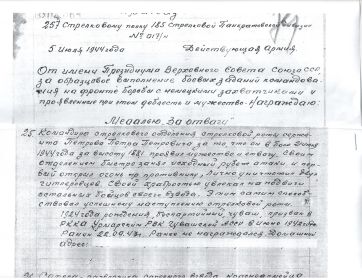 257 Стрелковому полку 185 Стрелковой Панкратовской дивизии
№ 017/н
5 Июля 1944 года Действующая Армия.
От имени Президиума Верховного совета Союза ССР
за образцовое выполнение боевых заданий командова-
ния на фронте борьбы с немецкими захватчиками и
проявленные при этом доблесть и мужество - Награждаю:
Медалью „За отвагу"
25. Командира стрелкового отделения стрелковой роты сержан-
та Петрова Петра Петровича за то что он в бою Июня
1944 года за высоту проявил мужество и отвагу. Своим
отделением быстро занял исходный рубеж атаки и пер-
вый открыл огонь по противнику, лично уничтожил двух
гитлеровцев. Своей храбростью увлекал на подвиги
остальных бойцов своего взвода. Этим самым способ-
ствовал успешному наступлению стрелковой роты.
1924 года рождения, беспартийный, чуваш, призван в
РККА Урмарским РВК Чувашской АССР в 1944 году.
Ранен 22.09.43г. Ранее не награждался. Домашний
адрес: